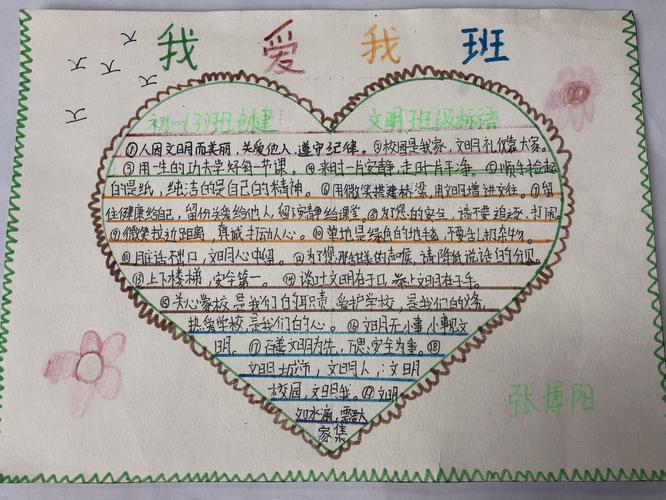 我爱我班
初一(3)班创建 文明班级标语
①人因文明而美丽,关爱他人,遵守纪律。②校园是我家,文明礼仪靠大家。
③用一生的功夫学好每一节课。④来时一片安静,走时一片干净。⑤顺手捡起
的是纸,纯洁的是自己的精神。⑥用微笑搭建桥梁,用文明增进交往。⑦留
住健康给自己,留份关爱给他人,留下安静给课堂。⑧为了您的安全,请不要追逐、打闹。
⑨微笑拉近距离,真诚打动人心。⑩草地是绿色的地毯,不要乱扔杂物。
⑪脏话不出口,文明心中留。⑫为了您那甜美的声喉,请降低说话的分贝。
⑬上下楼梯,安全第一。⑭谈吐文明在于口,举止文明在于手。
⑮关心学校是我们的职责,爱护学校,是我们的义务,
热爱学校,是我们的心。⑯文明无小事,小事见文
明。⑰百善文明为先,万思安全为重。⑱
文明城市,文明人,文明
校园,文明我。⑲文明
如水滴,需大
家集
张博阳